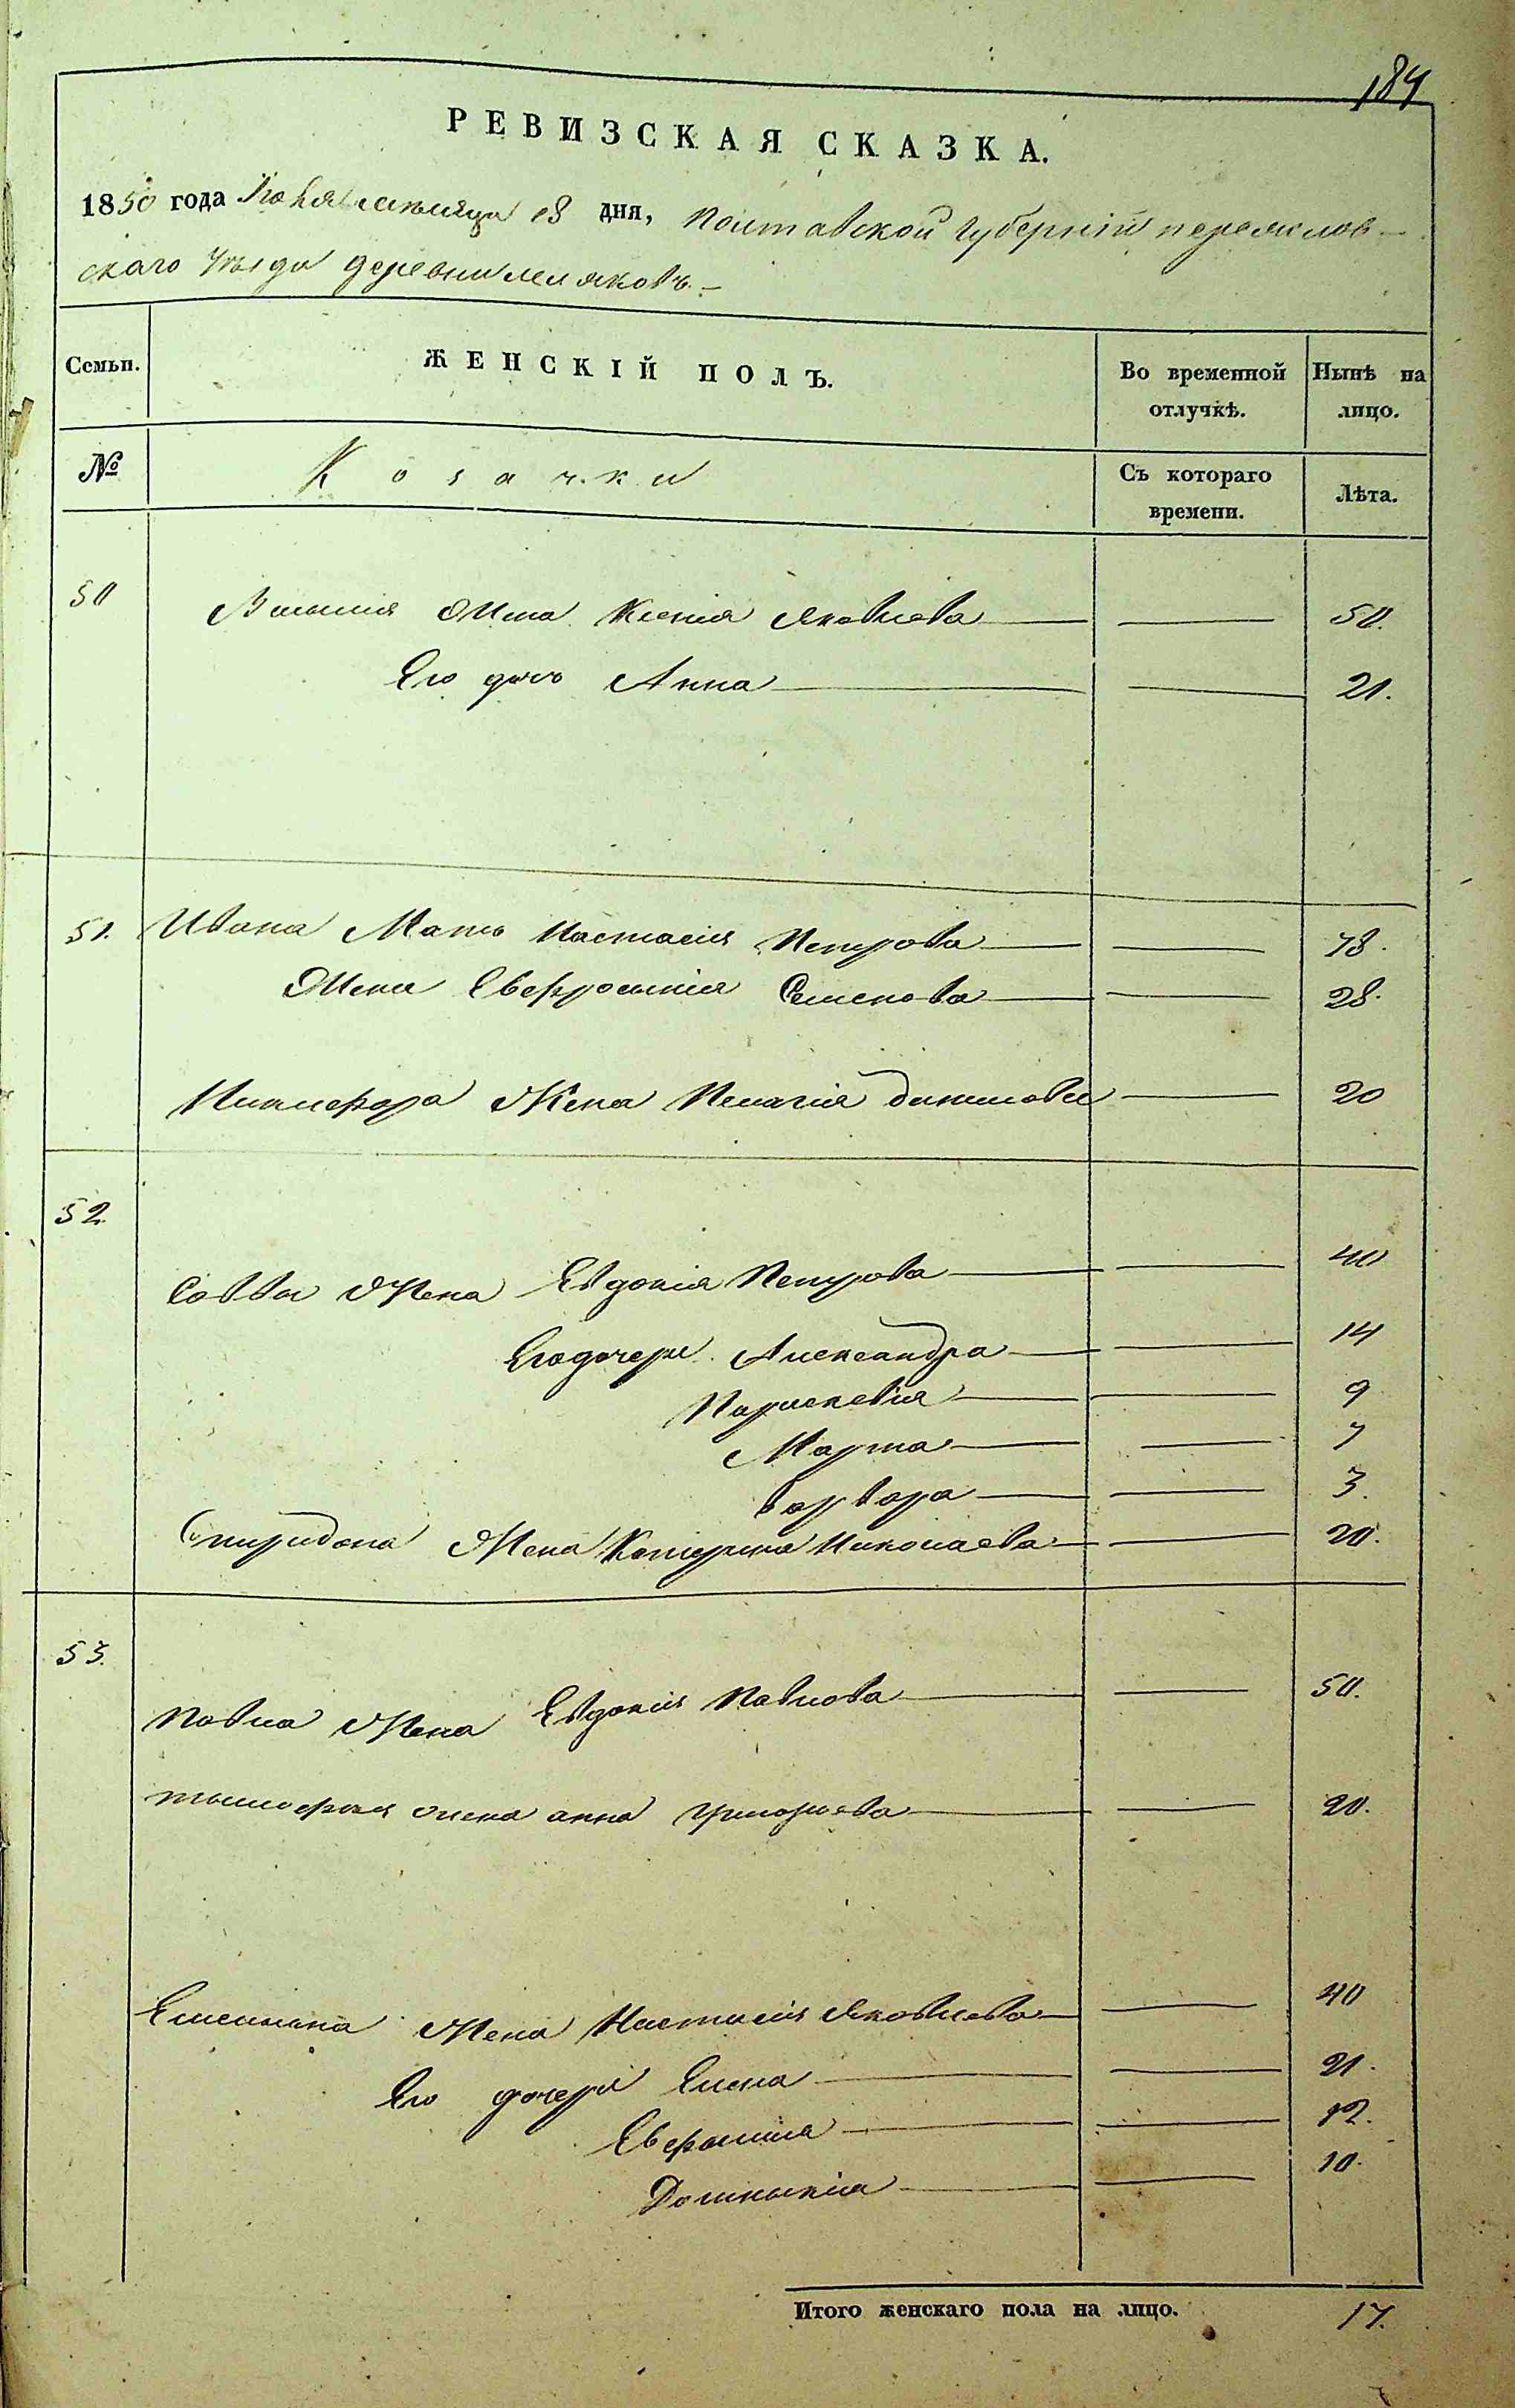 184
РЕВИЗСКАЯ СКАЗКА.
1850 года месяца 18 дня, Полтавской губерніи переяслов-
скаго уезда деревни Леляковъ. –
Семьи.
ЖЕНСКІЙ ПОЛЪ.
Во временной отлучкѣ.
Нынѣ на лицо.
№
Козачки
Съ котораго времени.
Лѣта.
50 Жена Ксенія Яковлева 50.
Его дочь Анна 21.
51. Ивана Мать Настасія Петрова 78.
Жена Евфросинія Семенова 28.
Никифора Жена Пелагія данилова 20
52.
Саввы Жена Евдокія Петрова 40
Его дочери Александра 14
Парасκевія 9
Марта 7
Варвара 3.
Спиридона Жена Катерина Николаева 20.
53.
Павла Жена Евдокія Павлова 50.
тимофея жена анна григорьева 20.
Емельяна Жена Настасія Яковлева 40
Его дочери Елена 21.
12.
Домникія 10.
Итого женскаго пола на лицо. 17.